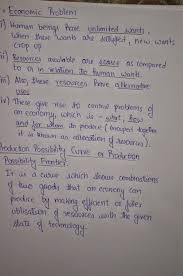 • Economic Problem
i) Human beings have unlimited wants.
When these wants are satisfied, new wants
crop up
ii) Resources available are scarce as compared
to or in relation to human wants.
iii) Also, these resources have alternative
uses
iv) These give rise to central problems of
an economy, which is - what, how
and for whom to produce (grouped together
it is known as allocation of resources).
Production Possibility Curve or Production
Possibility Frontier:
It is a curve which shows combinations
of two goods that an economy can
produce by making efficient or fuller
utilisation of resources with the given
state of technology.